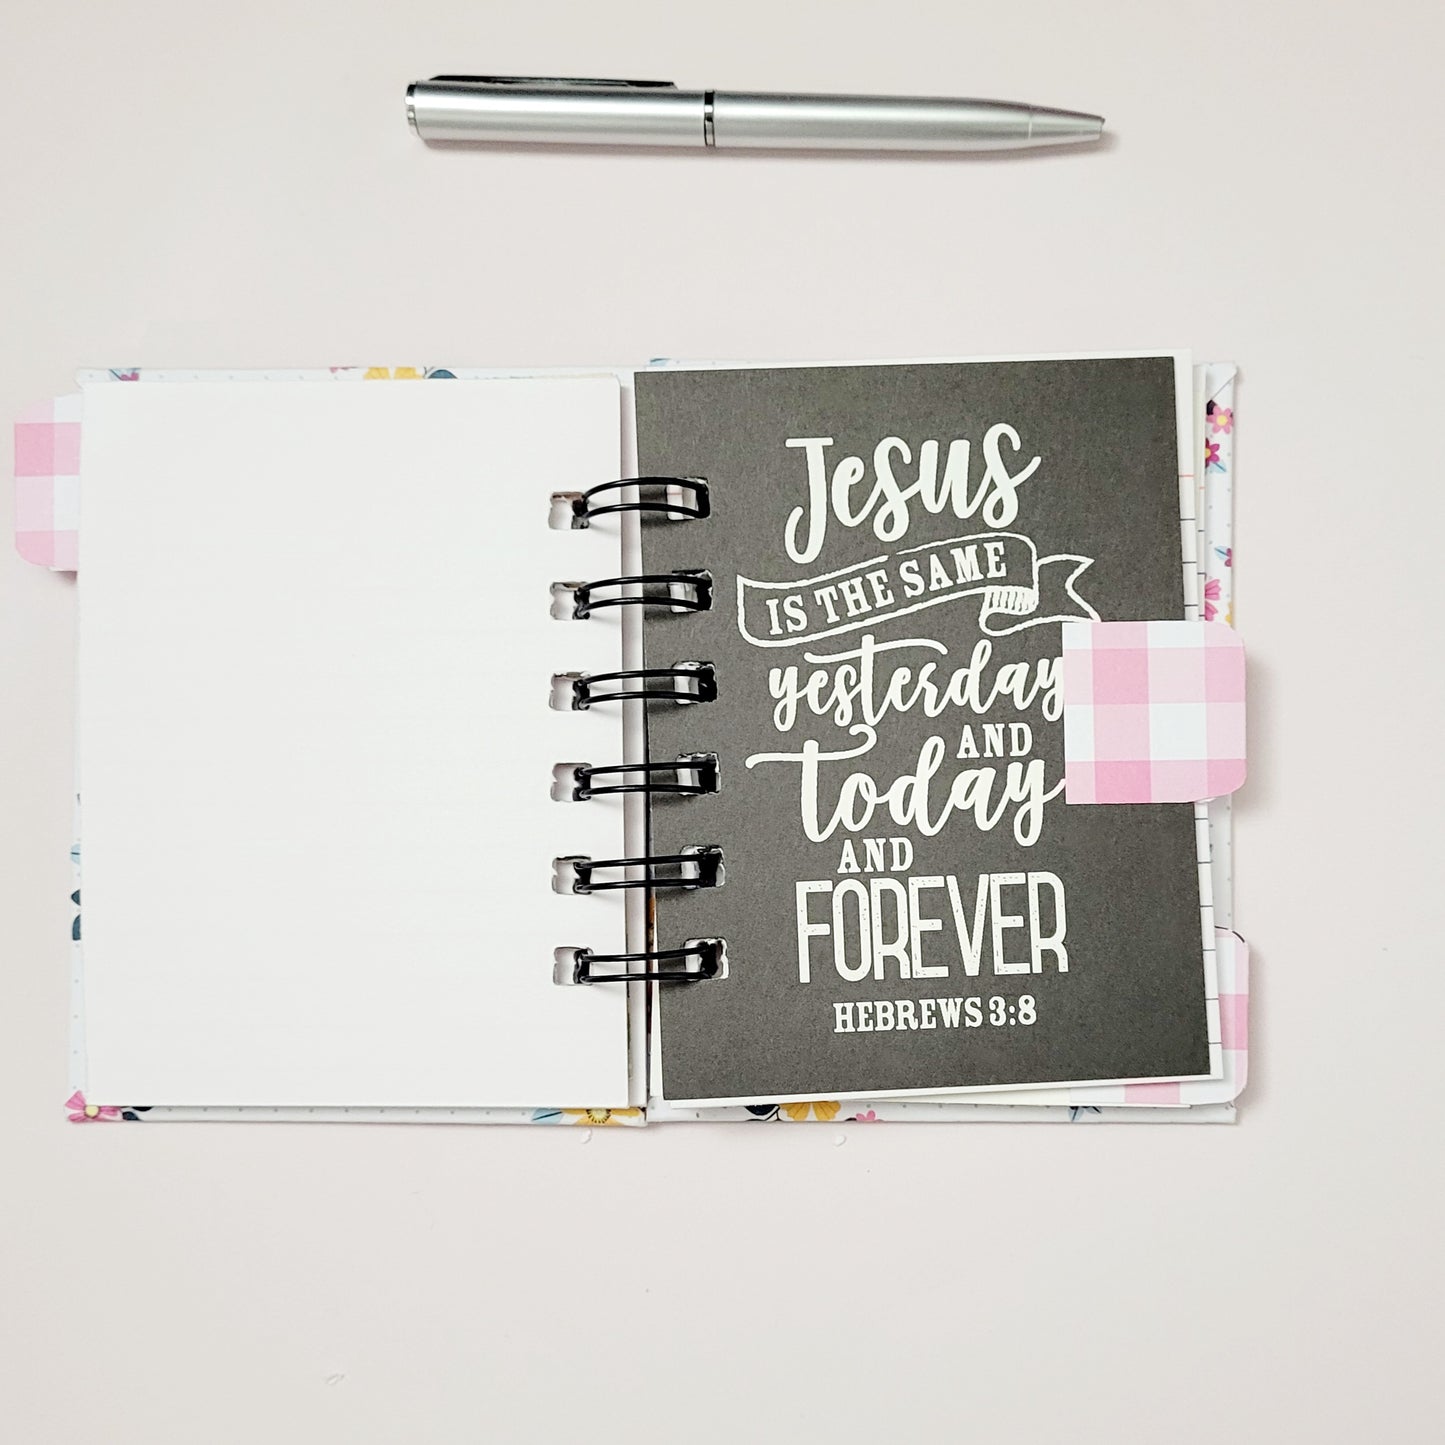 Jesus
IS THE SAME
yesterday
AND
today
AND
FOREVER
HEBREWS 3:8